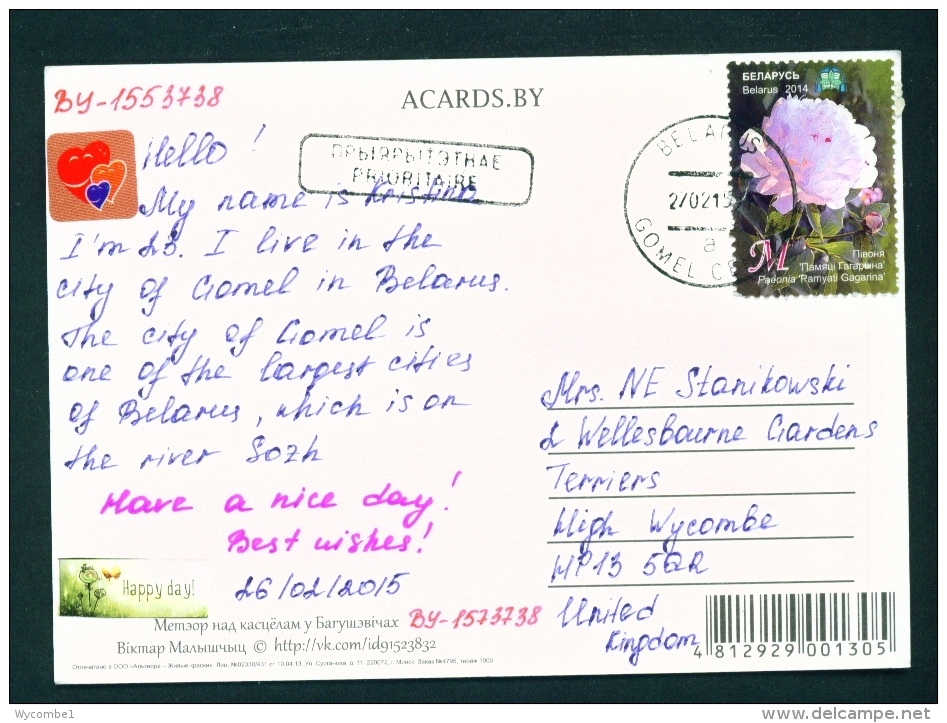 BY-1553738
ACARDS.BY
Hello!
ПРЫЯРЫТЭТНАЕ
PRIORITAIRE
My name is Kristina.
I'm 23. I live in the
city of Gomel in Belarus.
The city of Gomel is
one of the largest cities
of Belarus, which is on
the river Sozh
Have a nice day!
Best wishes!
26/02/2015
Happy day!
BY-1573738
Метэор над касцёлам у Багушэвічах
Віктар Малышчыц © http://vk.com/id91523832
Отпечатано в ООО «Альтиора – Живые краски». Лиц. №02330/431 от 10.04.13. Ул. Сурганова д. 11, 220072, г. Минск. Заказ №4795, тираж 1000
БЕЛАРУСЬ
Belarus 2014
M
Півоня
'Памяці Гагарына'
Paeonia 'Pamyati Gagarina'
BELARUS
270215
a
GOMEL
Mrs. NE Stanikowski
2 Wellesbourne Gardens
Terriers
High Wycombe
HP13 5QR
United
Kingdom
4 812929 001305
Wycombe1
www.delcampe.net